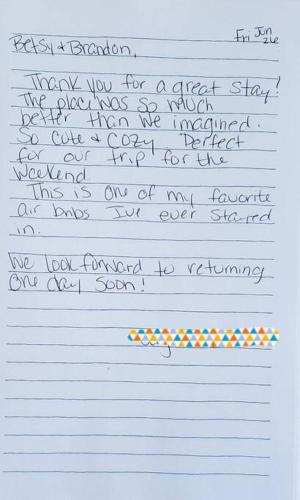 Fri Jun
26
Betsy & Brandon,
Thank you for a great stay!
The place was so much
better than we imagined.
So cute & cozy. Perfect
for our trip for the
weekend.
This is one of my favorite
air bnbs I've ever stayed
in.
We look forward to returning
one day soon!